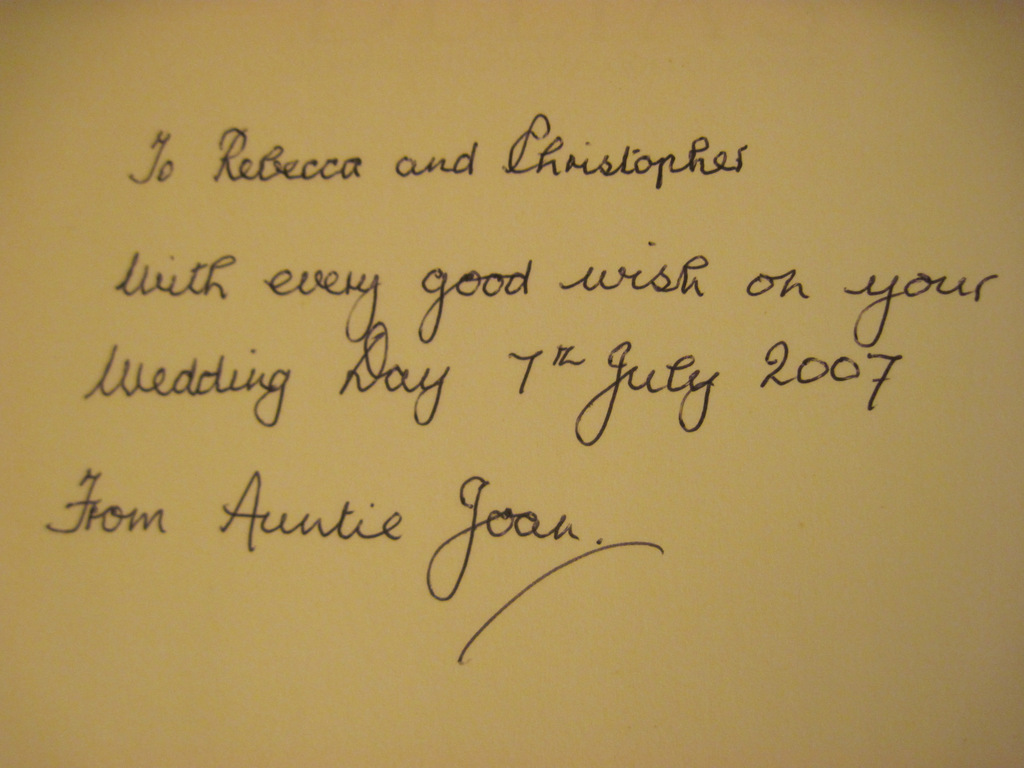 To Rebecca and Christopher
With every good wish on your
Wedding Day 7th July 2007
From Auntie Joan.